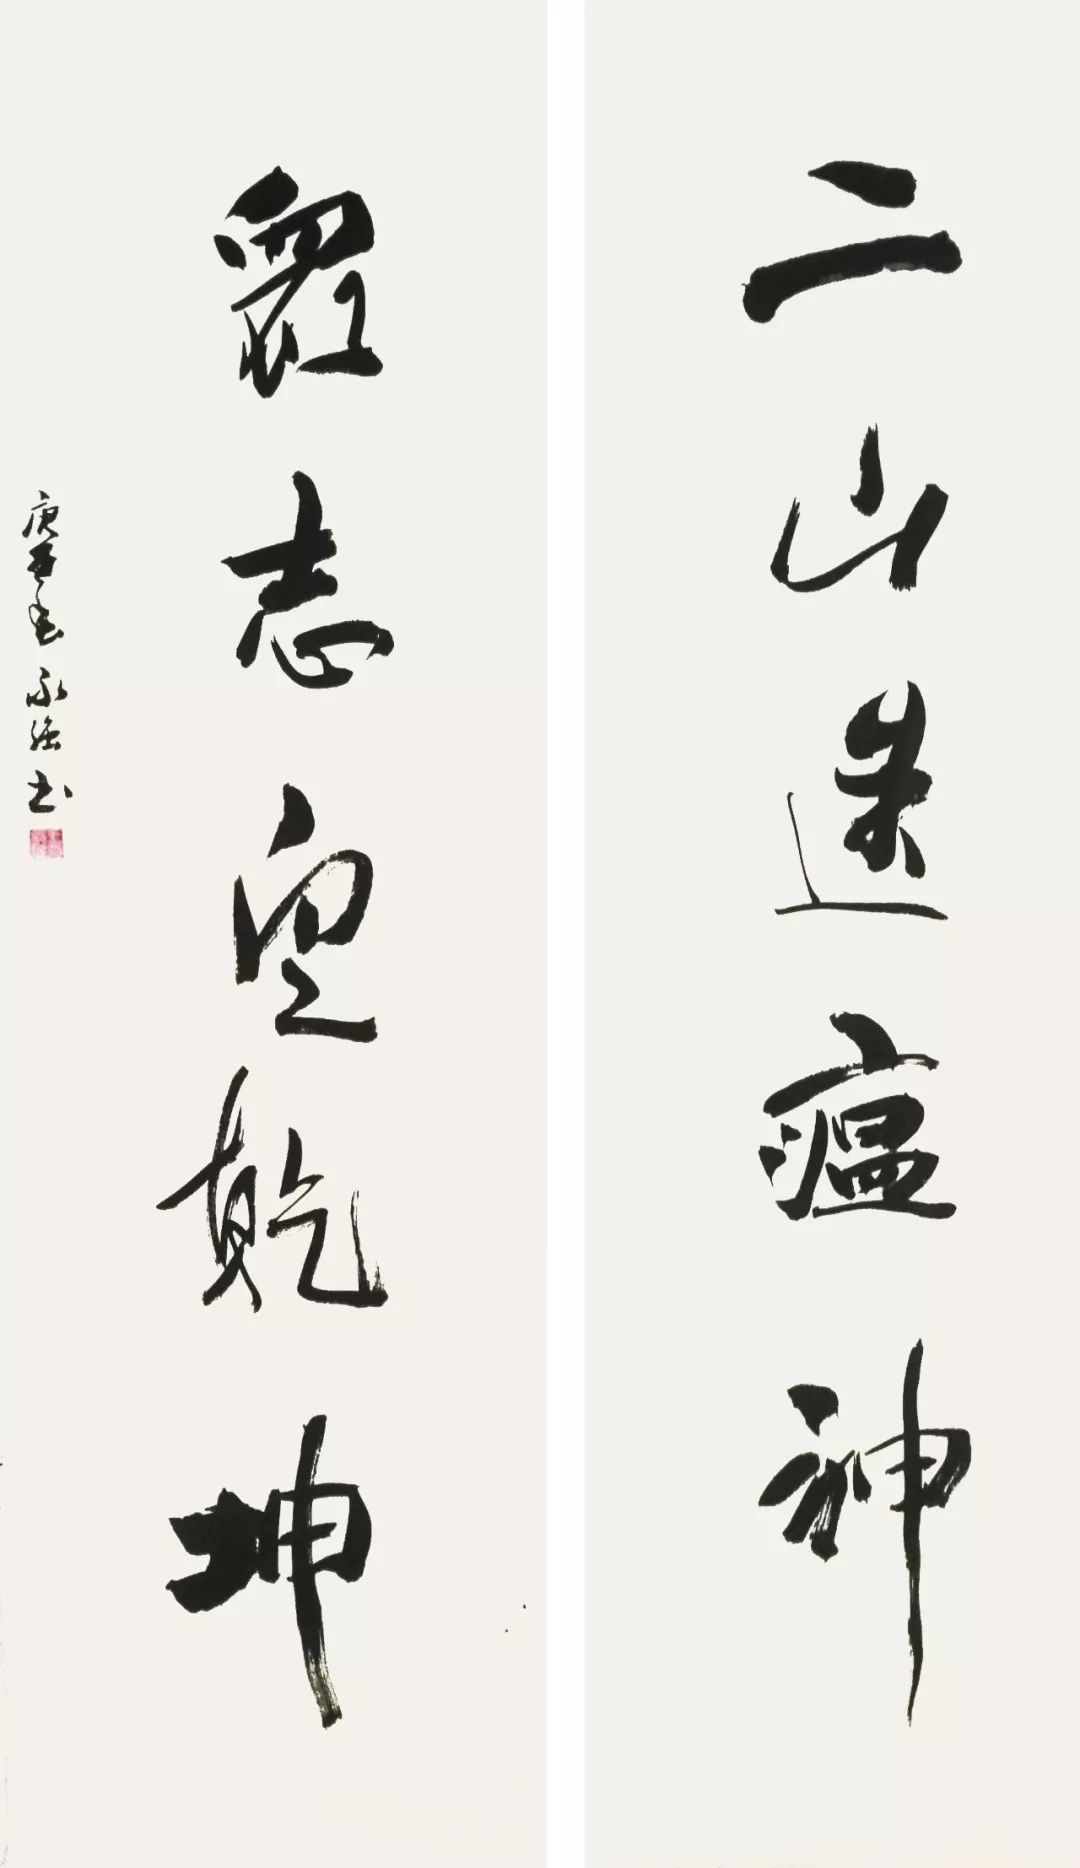 二山送瘟神
眾志定乾坤
庚子春永强书